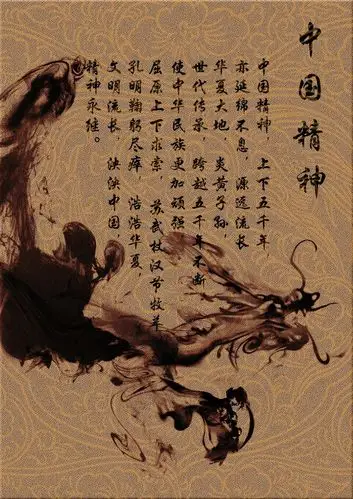 中国精神
中国精神，上下五千年，
亦延绵不息，源远流长
华夏大地，炎黄子孙，
世代传承，跨越五千年不断
使中华民族更加顽强
屈原上下求索，苏武杖汉节牧羊
孔明鞠躬尽瘁，浩浩华夏
文明流长，泱泱中国，
精神永继。